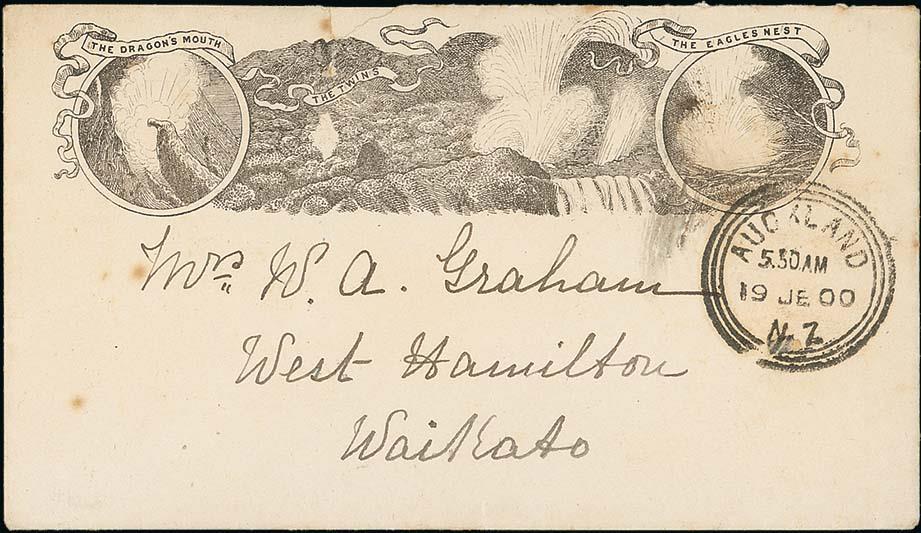 THE DRAGON'S MOUTH
THE TWINS
THE EAGLES NEST
AUCKLAND
5.30AM
19 JE 00
N.Z
Mrs. W. A. Graham
West Hamilton
Waikato